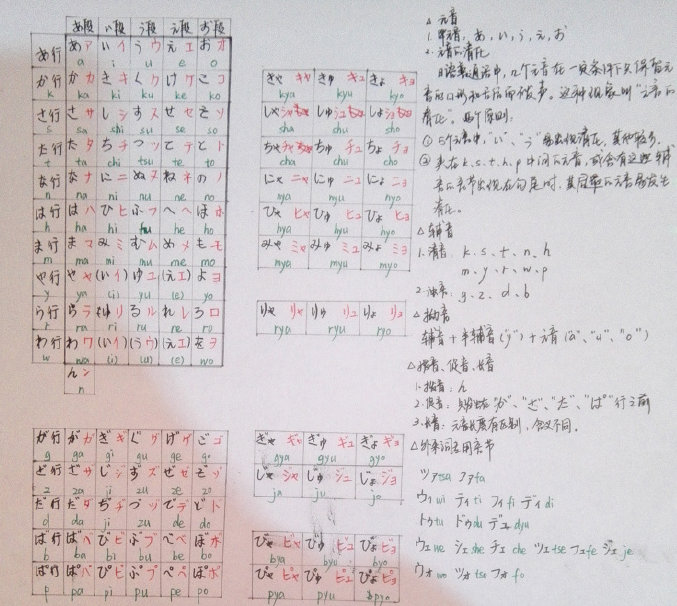 あ段 い段 う段 え段 お段
あ行 あ ア い イ う ウ え エ お オ
a i u e o
か行 か カ き キ く ク け ケ こ コ
k ka ki ku ke ko
さ行 さ サ し シ す ス せ セ そ ソ
s sa shi su se so
た行 た タ ち チ つ ツ て テ と ト
t ta chi tsu te to
な行 な ナ に ニ ぬ ヌ ね ネ の ノ
n na ni nu ne no
は行 は ハ ひ ヒ ふ フ へ ヘ ほ ホ
h ha hi fu he ho
ま行 ま マ み ミ む ム め メ も モ
m ma mi mu me mo
や行 や ヤ (い イ) ゆ ユ (え エ) よ ヨ
y ya (i) yu (e) yo
ら行 ら ラ り リ る ル れ レ ろ ロ
r ra ri ru re ro
わ行 わ ワ (い イ) (う ウ) (え エ) を ヲ
w wa (i) (u) (e) wo
ん ン
n
きゃ キャ きゅ キュ きょ キョ
kya kyu kyo
しゃ シャ しゅ シュ しょ ショ
sha shu sho
ちゃ チャ ちゅ チュ ちょ チョ
cha chu cho
にゃ ニャ にゅ ニュ にょ ニョ
nya nyu nyo
ひゃ ヒャ ひゅ ヒュ ひょ ヒョ
hya hyu hyo
みゃ ミャ みゅ ミュ みょ ミョ
mya myu myo
りゃ リャ りゅ リュ りょ リョ
rya ryu ryo
が行 が ガ ぎ ギ ぐ グ げ ゲ ご ゴ
g ga gi gu ge go
ざ行 ざ ザ じ ジ ず ズ ぜ ゼ ぞ ゾ
z za ji zu ze zo
だ行 だ ダ ぢ ヂ づ ヅ で デ ど ド
d da ji zu de do
ば行 ば バ び ビ ぶ ブ べ ベ ぼ ボ
b ba bi bu be bo
ぱ行 ぱ パ ぴ ピ ぷ プ ぺ ペ ぽ ポ
p pa pi pu pe po
ぎゃ ギャ ぎゅ ギュ ぎょ ギョ
gya gyu gyo
じゃ ジャ じゅ ジュ じょ ジョ
ja ju jo
びゃ ビャ びゅ ビュ びょ ビョ
bya byu byo
ぴゃ ピャ ぴゅ ピュ ぴょ ピョ
pya pyu pyo
△ 元音
1. 单元音: あ, い, う, え, お
2. 元音的清化
日语普通话中, 几个元音在一定条件下只保留元
音的口形和舌位而不发声。这种现象叫"元音的
清化"。两个原则:
① 5个元音中, "い"、"う"易出现清化, 其他较少。
② 夹在k.s.t.h.p中间的元音, 或含有这些辅
音的音节出现在句尾时, 其尾部的元音易发生
清化。
△ 辅音
1. 清音: k. s. t. n. h
m. y. r. w. p
2. 浊音: g. z. d. b
△ 拗音
辅音 + 半辅音("y") + 元音("a"、"u"、"o")
△ 拨音、促音、长音
1. 拨音: ん
2. 促音: 只能出在"か"、"さ"、"た"、"ぱ"行之前
3. 长音: 元音长度有区别, 含义不同。
△ 外来词专用音节
ツァ tsa ファ fa
ウィ wi ティ ti フィ fi ディ di
トゥ tu ドゥ du デュ dyu
ウェ we シェ she チェ che ツェ tse フェ fe ジェ je
ウォ wo ツォ tso フォ fo